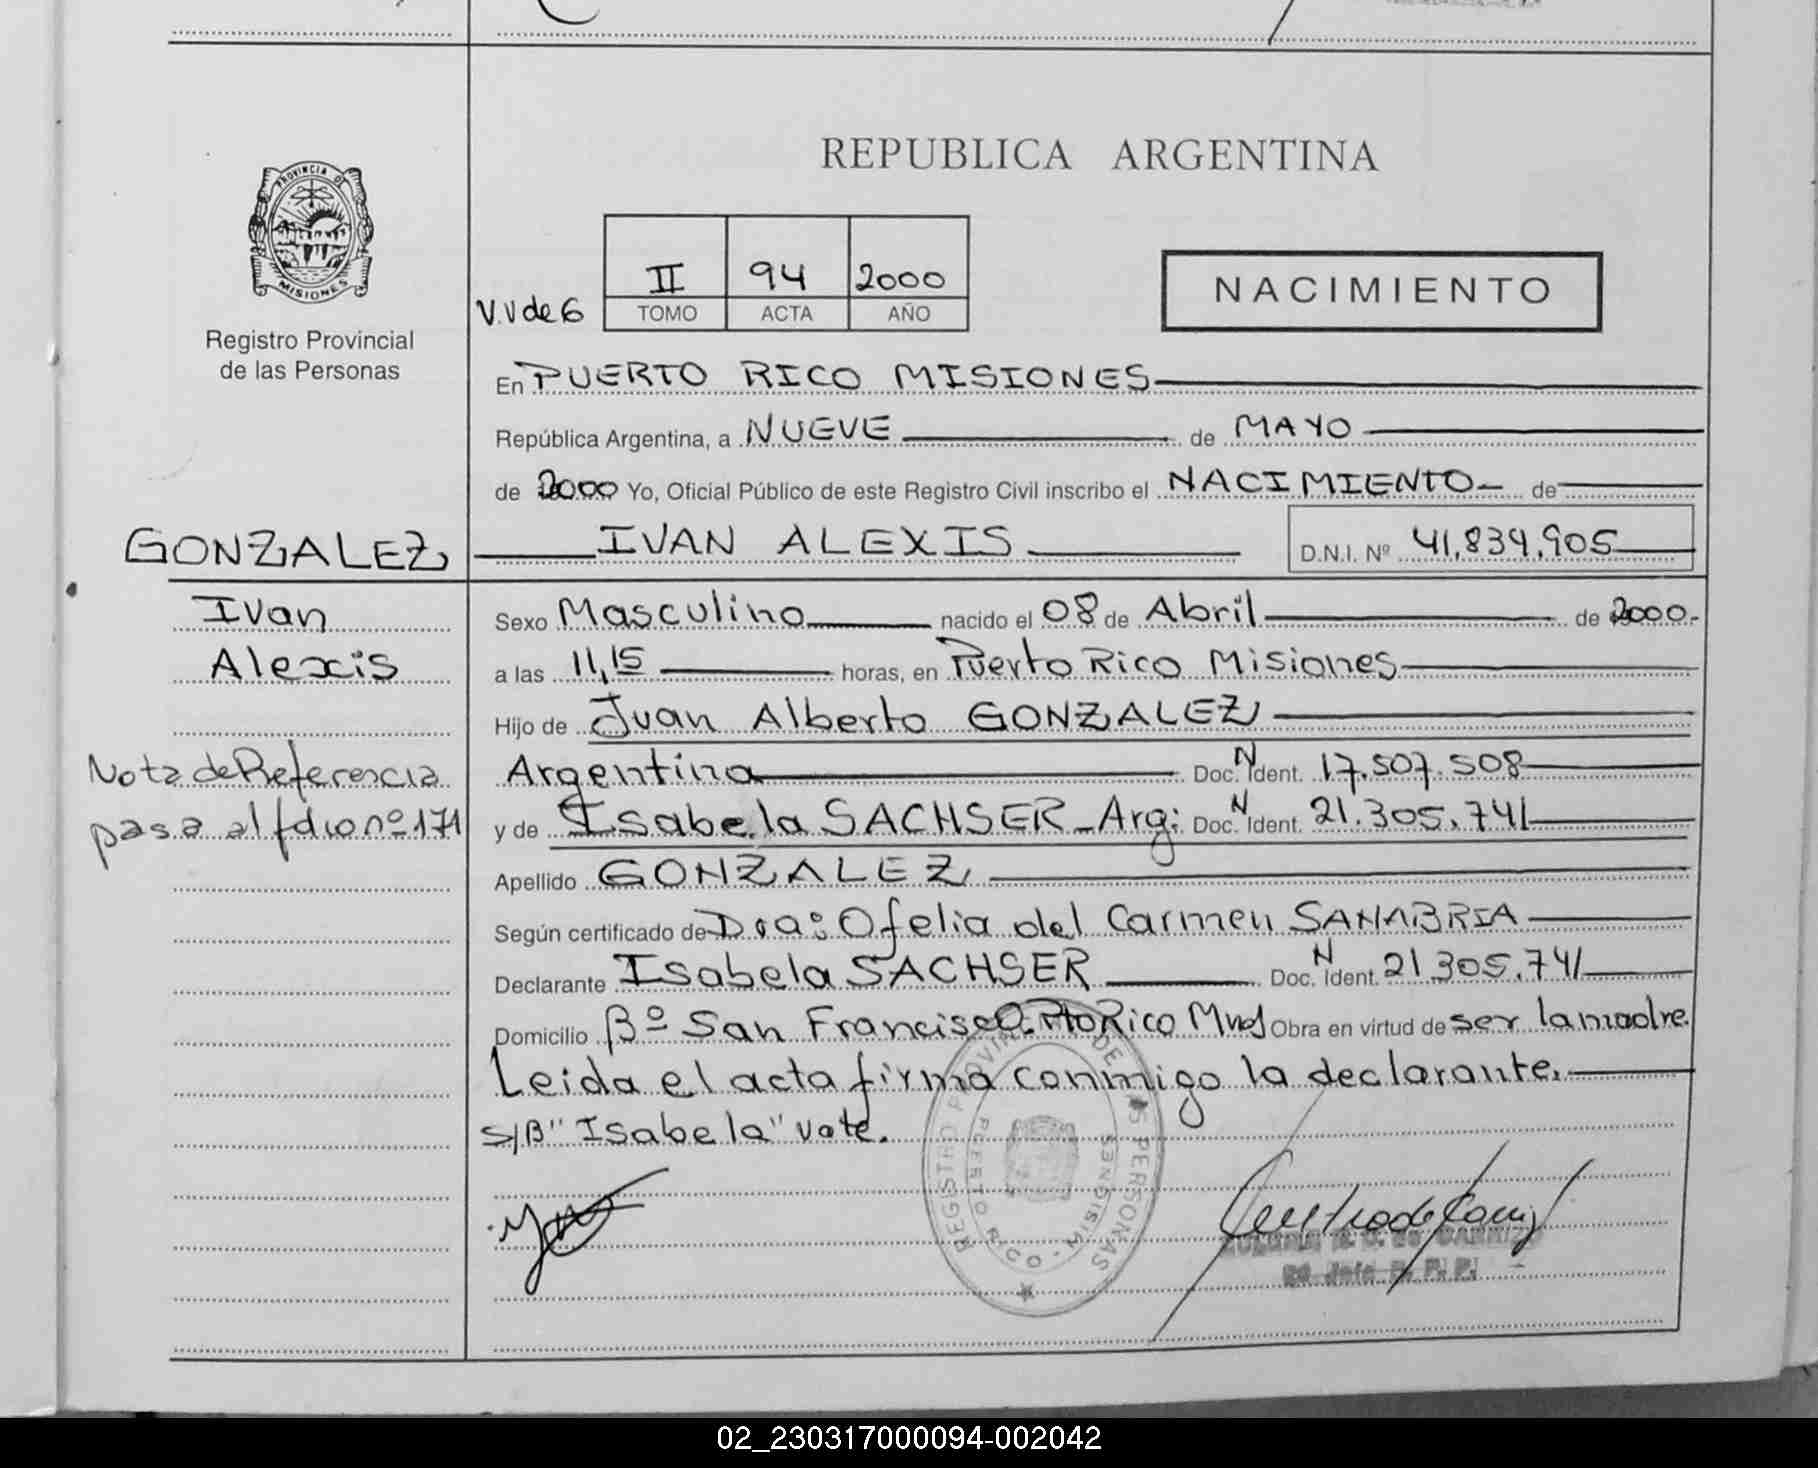 PROVINCIA DE
MISIONES
Registro Provincial
de las Personas
REPUBLICA ARGENTINA
V.V de 6
II 94 2000
TOMO ACTA AÑO
NACIMIENTO
En PUERTO RICO MISIONES
República Argentina, a NUEVE de MAYO
de 2000 Yo, Oficial Público de este Registro Civil inscribo el NACIMIENTO de
GONZALEZ
IVAN ALEXIS D.N.I. Nº 41.839.905
Ivan
Alexis
Nota de Referencia
pasa al fdio nº 171
Sexo Masculino nacido el 08 de Abril de 2000.-
a las 11,15 horas, en Puerto Rico Misiones
Hijo de Juan Alberto GONZALEZ
Argentina Doc. N Ident. 17.507.508
y de Isabela SACHSER - Arg: Doc. N Ident. 21.305.741
Apellido GONZALEZ
Según certificado de Dra: Ofelia del Carmen SANABRIA
Declarante Isabela SACHSER Doc. N Ident. 21.305.741
Domicilio Bº San Francisco. Pto Rico Mnes Obra en virtud de ser la madre.
Leida el acta firma conmigo la declarante.
S/B "Isabela" vale.
REGISTRO PROVINCIAL DE LAS PERSONAS
PUERTO RICO - MISIONES
02_230317000094-002042